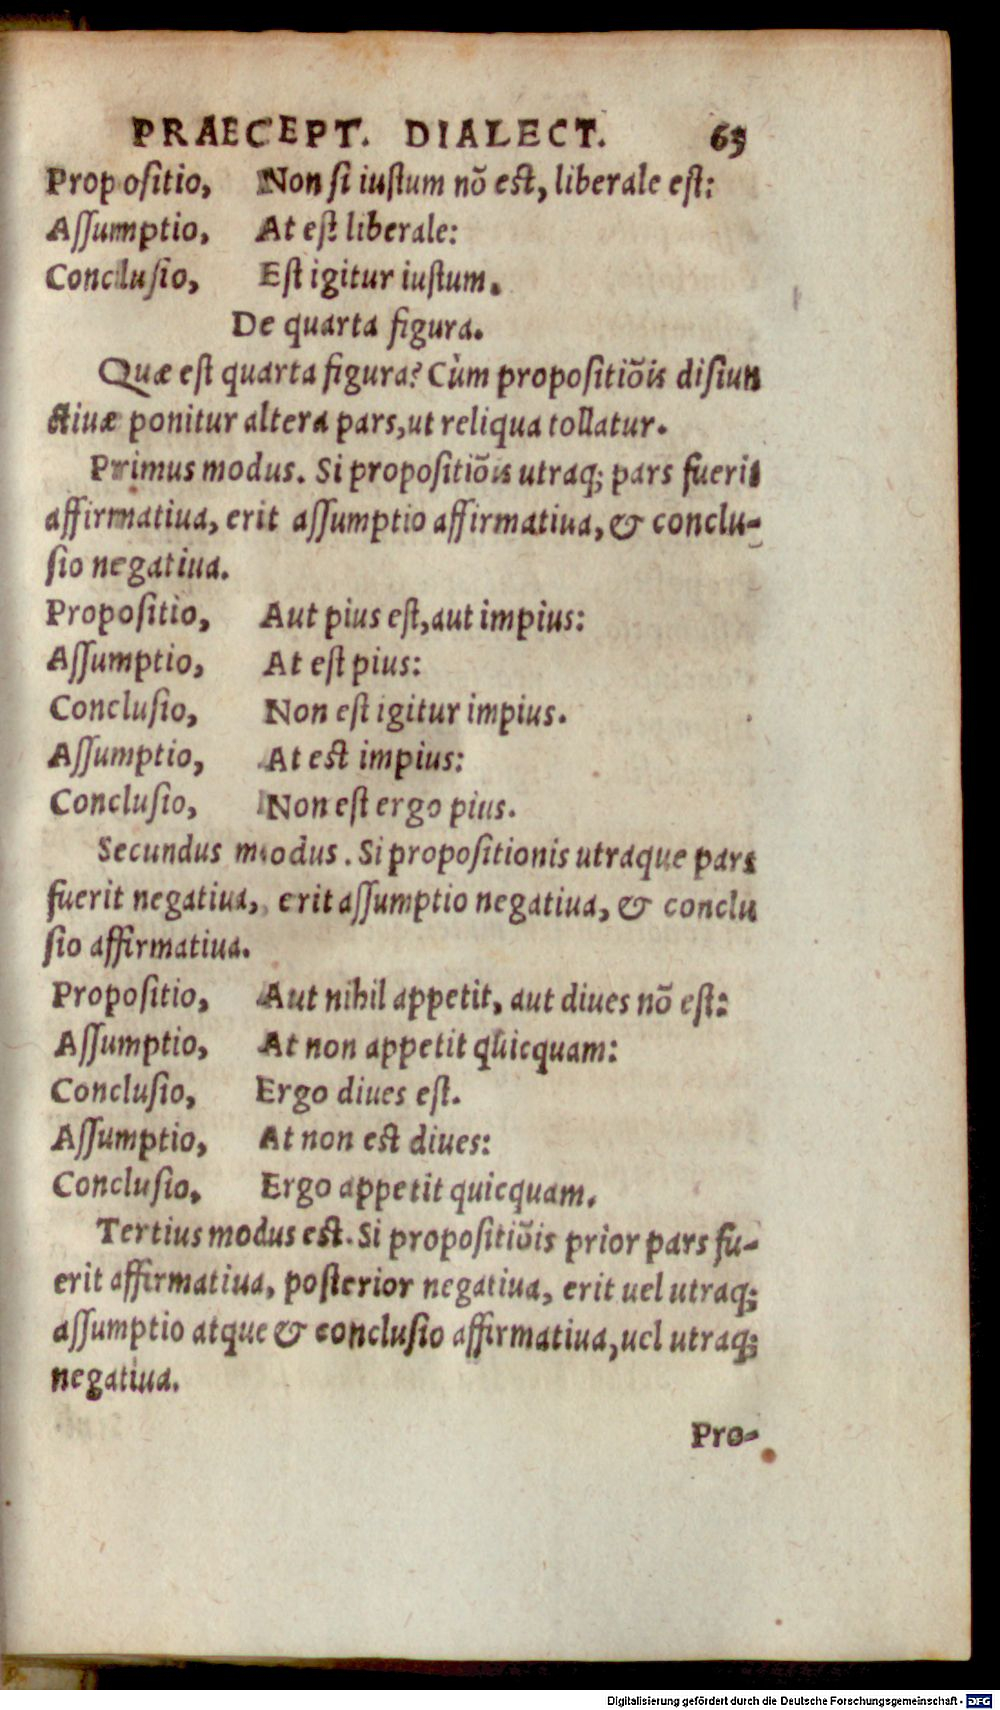 PRAECEPT. DIALECT. 65
Propositio, Non si iustum nõ est, liberale est:
Assumptio, At est liberale:
Conclusio, Est igitur iustum.
De quarta figura.
Quæ est quarta figura? Cùm propositiõis disiun
ctiuæ ponitur altera pars, ut reliqua tollatur.
Primus modus. Si propositiõis utraq; pars fuerit
affirmatiua, erit assumptio affirmatiua, & conclu-
sio negatiua.
Propositio, Aut pius est, aut impius:
Assumptio, At est pius:
Conclusio, Non est igitur impius.
Assumptio, At est impius:
Conclusio, Non est ergo pius.
Secundus modus. Si propositionis utraque pars
fuerit negatiua, erit assumptio negatiua, & conclu
sio affirmatiua.
Propositio, Aut nihil appetit, aut diues nõ est:
Assumptio, At non appetit quicquam:
Conclusio, Ergo diues est.
Assumptio, At non est diues:
Conclusio, Ergo appetit quicquam.
Tertius modus est. Si propositiõis prior pars fu-
erit affirmatiua, posterior negatiua, erit uel utraq;
assumptio atque & conclusio affirmatiua, uel utraq;
negatiua.
Pro-
Digitalisierung gefördert durch die Deutsche Forschungsgemeinschaft - DFG